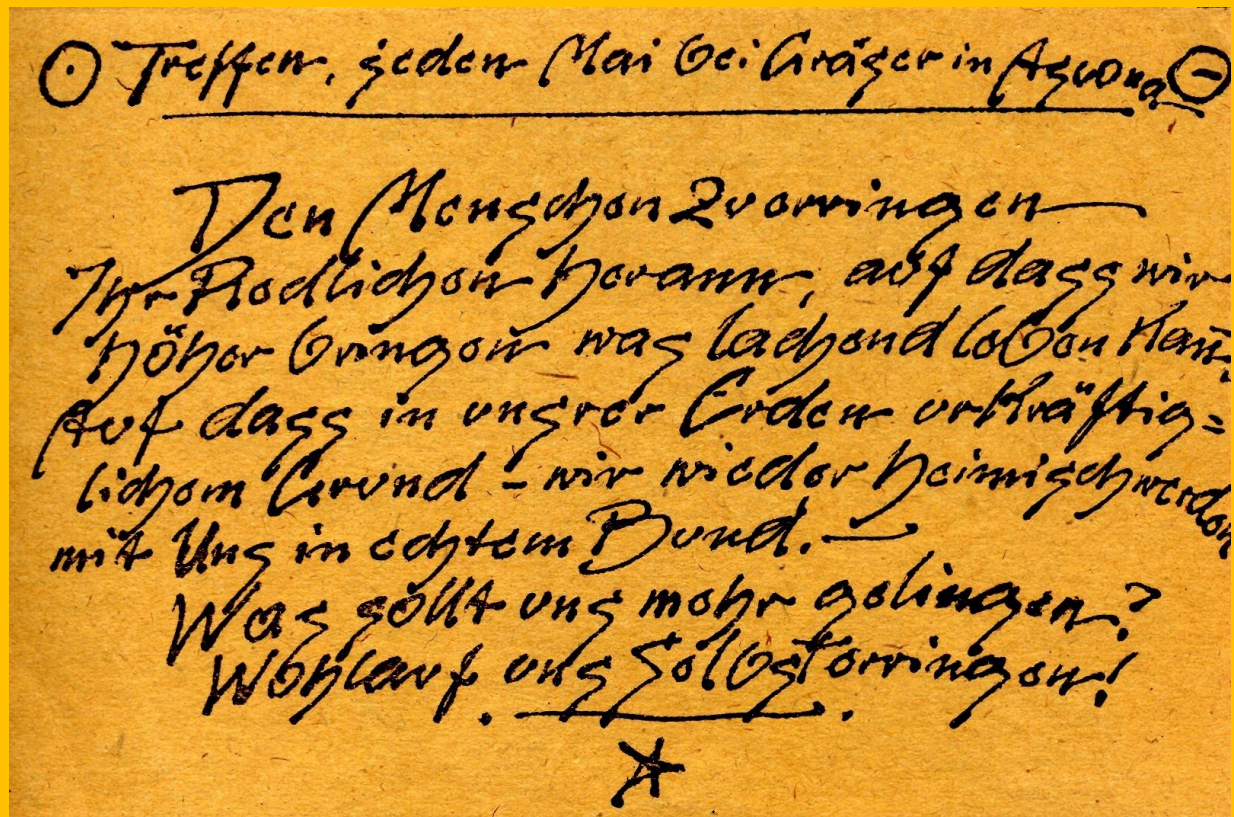 Treffen, jeden Mai bei Gräser in Ascona
Den Menschen zuerringen
Ihr Redlichen herann, auf dass wir
höher bringen was lachend leben kañ,
Auf dass in unsrer Erden urkräftig=
lichem Grund – wir wieder heimisch werden
mit Uns in echtem Bund. –
Was söllt uns mehr gelingen?
Wohlauf uns Selbsterringen!